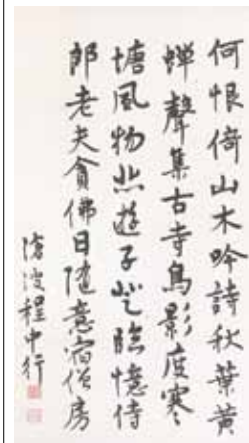 何恨倚山木吟詩秋葉黃
蟬聲集古寺鳥影度寒
塘風物悲遊子登臨憶侍
郎老夫貪佛日隨意宿僧房
滄波程中行